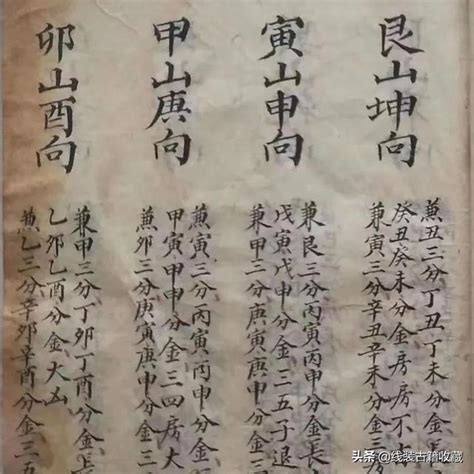 艮山坤向
兼丑三分丁丑丁未分金長
癸丑癸未分金房房不
兼寅三分辛丑辛未分金
寅山申向
兼艮三分丙寅丙申分金長
戊寅戊申分金三五子退
兼甲三分庚寅庚申分金
甲山庚向
兼寅三分丙寅丙申分金
甲寅甲申分金三四房大
兼卯三分庚寅庚申分金三
卯山酉向
兼甲三分丁卯丁酉分金長
乙卯乙酉分金大凶
兼乙三分辛卯辛酉分金三
头条 @线装古籍收藏